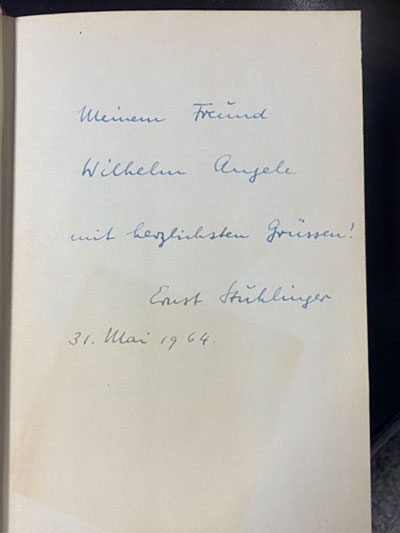 Meinem Freund
Wilhelm Angele
mit herzlichsten Grüssen!
Ernst Stuhlinger
31. Mai 1964.